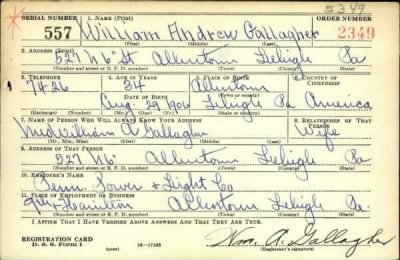 2349
SERIAL NUMBER 1. NAME (Print) ORDER NUMBER
557 William Andrew Gallagher 2349
2. ADDRESS (Print)
527 N 6" St Allentown Lehigh Pa
(Number and street or R. F. D. number) (Town) (County) (State)
3. TELEPHONE 4. AGE IN YEARS 5. PLACE OF BIRTH 6. COUNTRY OF CITIZENSHIP
7426 34 Allentown
DATE OF BIRTH
Aug. 29 1906 Lehigh Pa America
(Exchange) (Number) (Mo.) (Day) (Yr.) (Town or county) (State or country)
7. NAME OF PERSON WHO WILL ALWAYS KNOW YOUR ADDRESS 8. RELATIONSHIP OF THAT PERSON
Mrs William A Gallagher Wife
(Mr., Mrs., Miss) (First) (Middle) (Last)
9. ADDRESS OF THAT PERSON
527 N 6" Allentown Lehigh Pa
(Number and street or R. F. D. number) (Town) (County) (State)
10. EMPLOYER'S NAME
Penn. Power & Light Co
11. PLACE OF EMPLOYMENT OR BUSINESS
9th & Hamilton Allentown Lehigh Pa.
(Number and street or R. F. D. number) (Town) (County) (State)
I AFFIRM THAT I HAVE VERIFIED ABOVE ANSWERS AND THAT THEY ARE TRUE.
REGISTRATION CARD
D. S. S. Form 1 16—17105 Wm. A. Gallagher
(Registrant's signature)